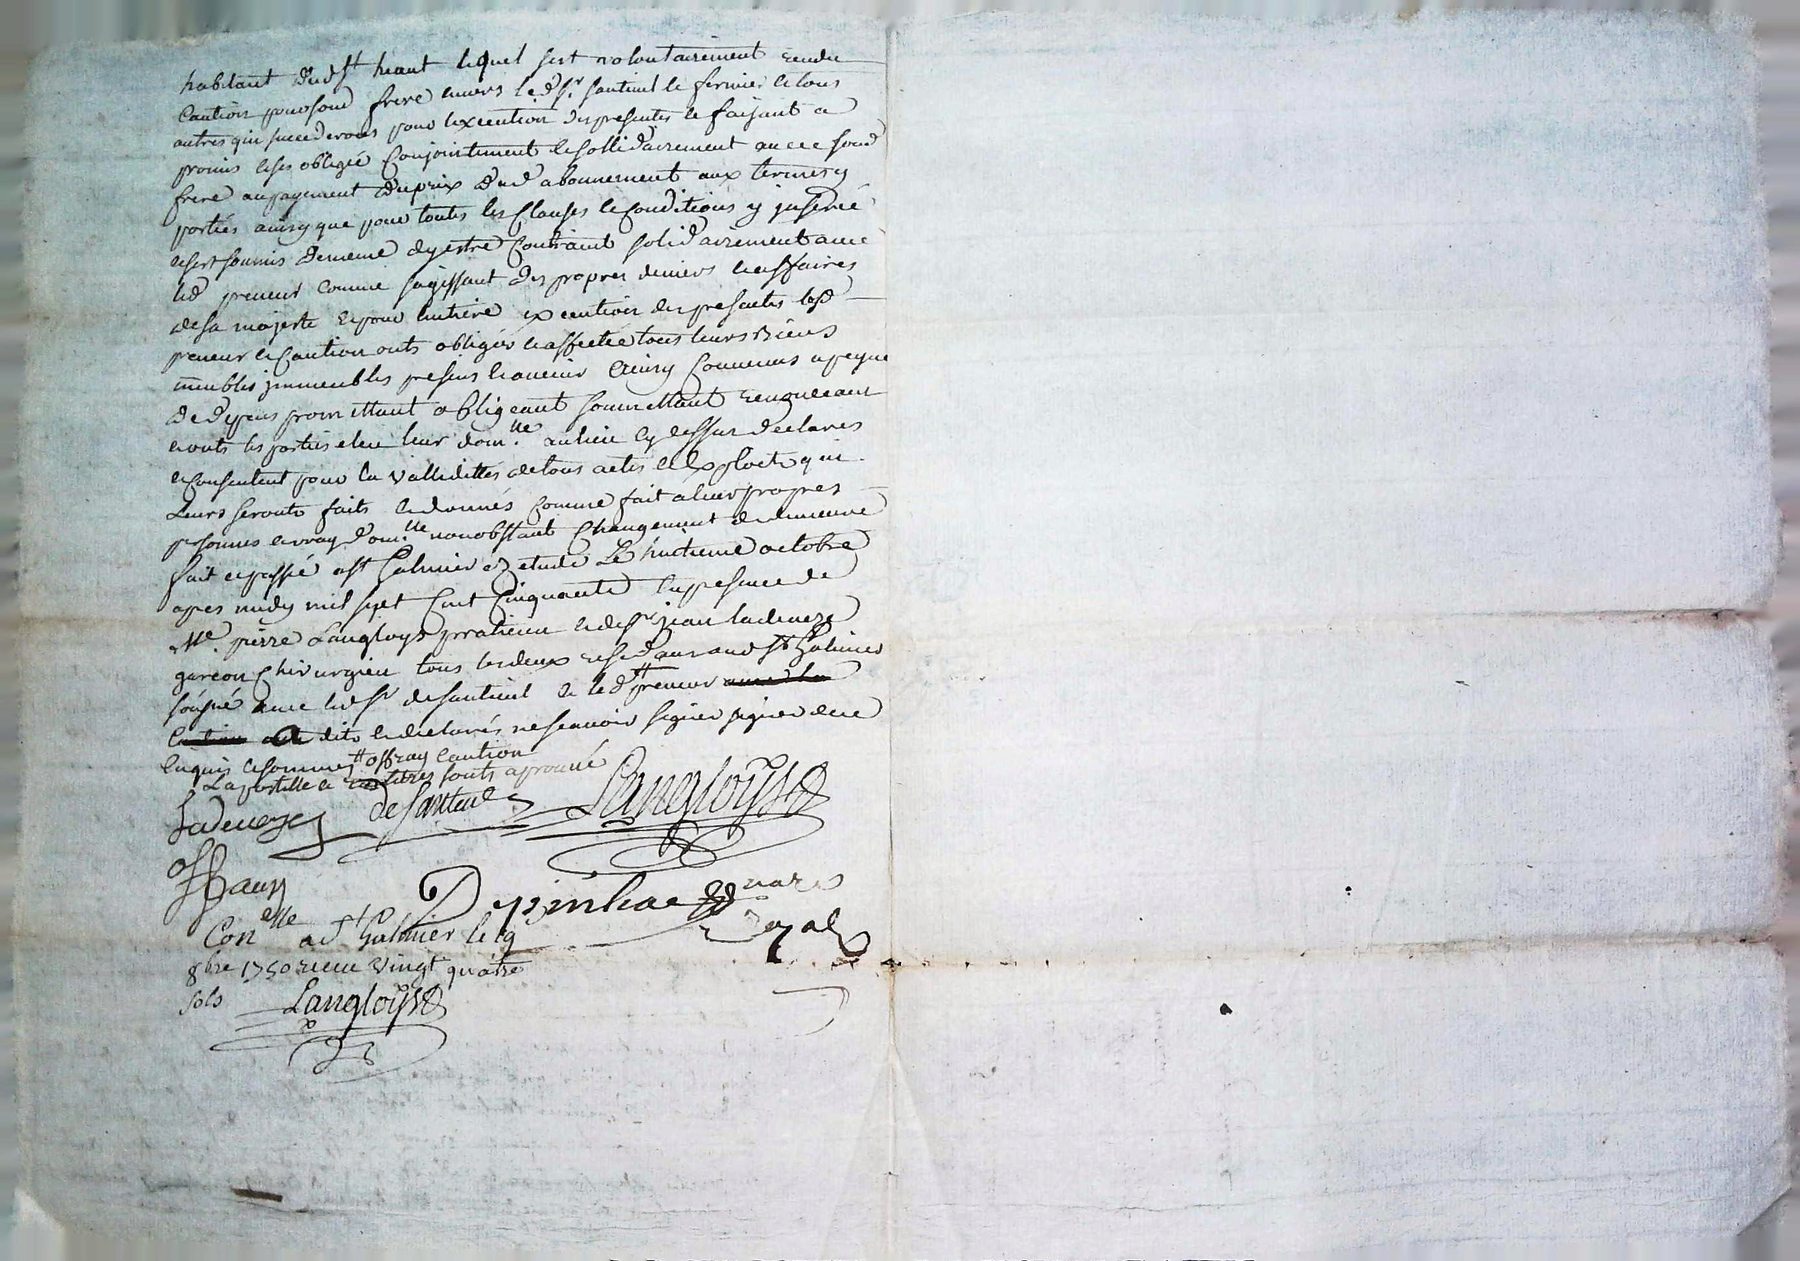 habitant dud st heant lequel sest volontairement rendu
Caution pour son frere envers led Sr santeuil le fermier et tous
autres qui succederont pour lexecution des presentes ce faisant a
promis et ses obligé conjointement et sollidairement avec sond
frere au payement du prix dud abonnement aux termes y
portés ainsy que pour toutes les clauses et conditions y inseréé
et sest soumis de meme dy estre contraint solidairement avec
led preneur comme sagissant des propres deniers et affaires
de sa majesté et pour lentiere execution des presentes lesd
preneur et caution onts obligés et affectée tous leurs Biens
meubles immeubles presens et avenir Ainsy convenus a peyne
de depens promettant obligeant soumettant renonceant
et onts les parties eleu leur dom.lle au lieu cy dessus declarés
et consentent pour la vallidittes de tous actes et exploits qui
Leurs seronts faits et donnés comme fait a leur propres
personnes et vray dom.lle nonobstant changement de demeure
fait et passé a st Galmier etude Le huitieme octobre
apres midy mil sept Cent Cinquante En presence de
Me. pierre Langloys praticien et de sr jean ladeveze
garcon chirurgien tous les deux residants aud st Galmier
soisigné avec led Sr de santeuil et led # preneur
a dit et declarés ne scavoir signer signer de ce
enquis et sommés # offray caution
La postille et ratures sonts aprouvé
Ladeveze de Santeul Langloys
offrauy
Depinhac nore
Royal
Con.elle a st Galmier le 19
8bre 1750 receu vingt quatre
sols Langloys